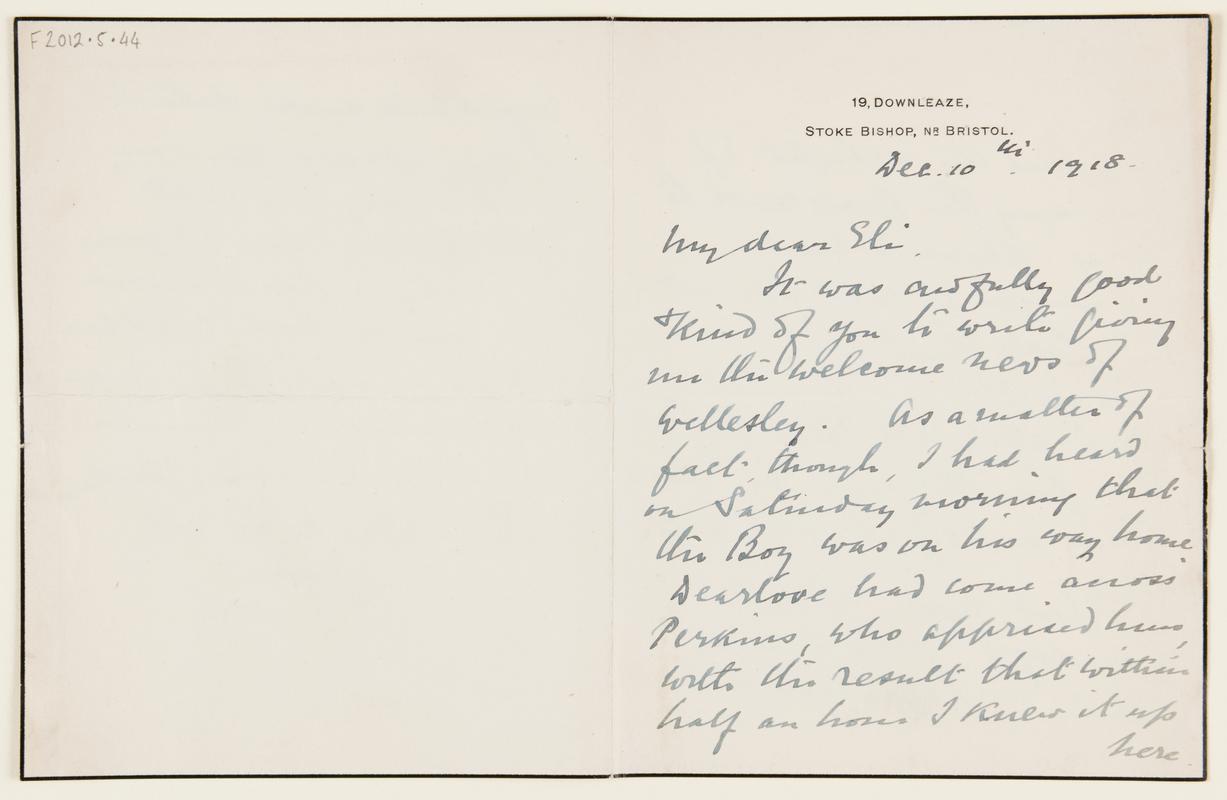 F2012.5.44
19, DOWNLEAZE,
STOKE BISHOP, NR BRISTOL.
Dec. 10th. 1918.
My dear Eli,
It was awfully good
& kind of you to write giving
me the welcome news of
Wellesley. As a matter of
fact, though, I had heard
on Saturday morning that
the Boy was on his way home.
Dearlove had come across
Perkins, who apprised him,
with the result that within
half an hour I knew it up
here.